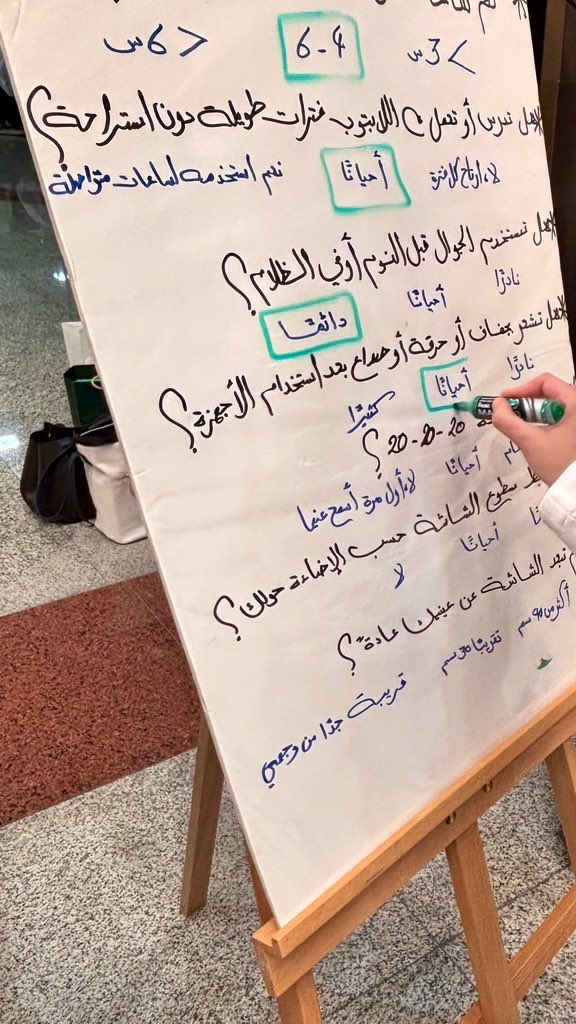 > 3س 4-6 < 6س
هل تدرس أو تعمل على اللابتوب فترات طويلة دون استراحة؟
لا، ارتاح كل فترة أحيانًا نعم استخدمه لساعات متواصلة
هل تستخدم الجوال قبل النوم أو في الظلام؟
نادرًا أحيانًا دائمًا
هل تشعر بجفاف أو حرقة أو صداع بعد استخدام الأجهزة؟
نادرًا أحيانًا كثيرًا
20-20-20؟
أحيانًا لا، أول مرة أسمع عنها
سطوع الشاشة حسب الإضاءة حولك؟
أحيانًا لا
تبعد الشاشة عن عينيك عادةً؟
أكثر من 40 سم تقريبًا 30 سم قريبة جدًا من وجهي